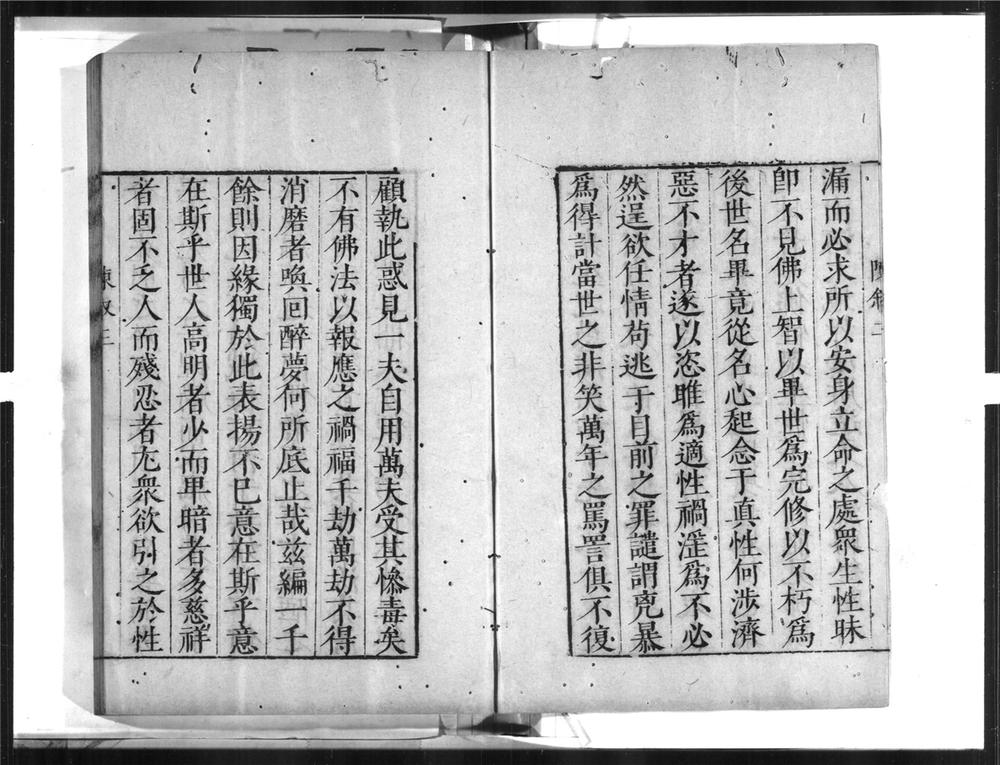 漏而必求所以安身立命之處衆生性昧
卽不見佛上智以畢世爲完修以不朽爲
後世名畢竟從名心起念于真性何涉濟
惡不才者遂以恣雎爲適性禍淫爲不必
然逞欲任情苟逃于目前之罪譴謂兇暴
爲得計當世之非笑萬年之罵詈俱不復
顧執此惑見一夫自用萬夫受其慘毒矣
不有佛法以報應之禍福千劫萬劫不得
消磨者喚囘醉夢何所底止哉茲編一千
餘則因緣獨於此表揚不巳意在斯乎意
在斯乎世人高明者少而卑暗者多慈祥
者固不乏人而殘忍者尤衆欲引之於性
陳叙二
陳叙三